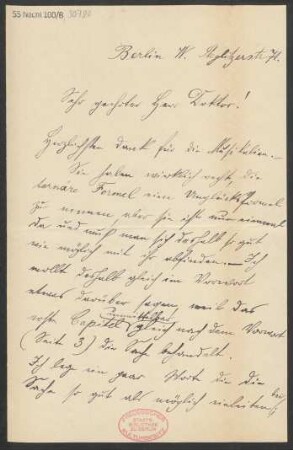 55 Nachl 100/B
Berlin W. Steglitzerstr. 71.
Sehr geehrter Herr Doktor!
Herzlichsten Dank für die
Sie haben wirklich recht, die
ternäre Formel eine Unglücksformel
zu nennen aber sie ist nun einmal
da und muß man sich deshalb so gut
wie möglich mit ihr abfinden. — Ich
wollt deshalb gleich im Vorwort
etwas darüber sagen weil das
erste Capitel unmittelbar gleich nach dem Vorwort
(Seite 3) die Sach behandelt.
Ich leg ein paar Worte bei die die
Sache so gut als möglich einleiten